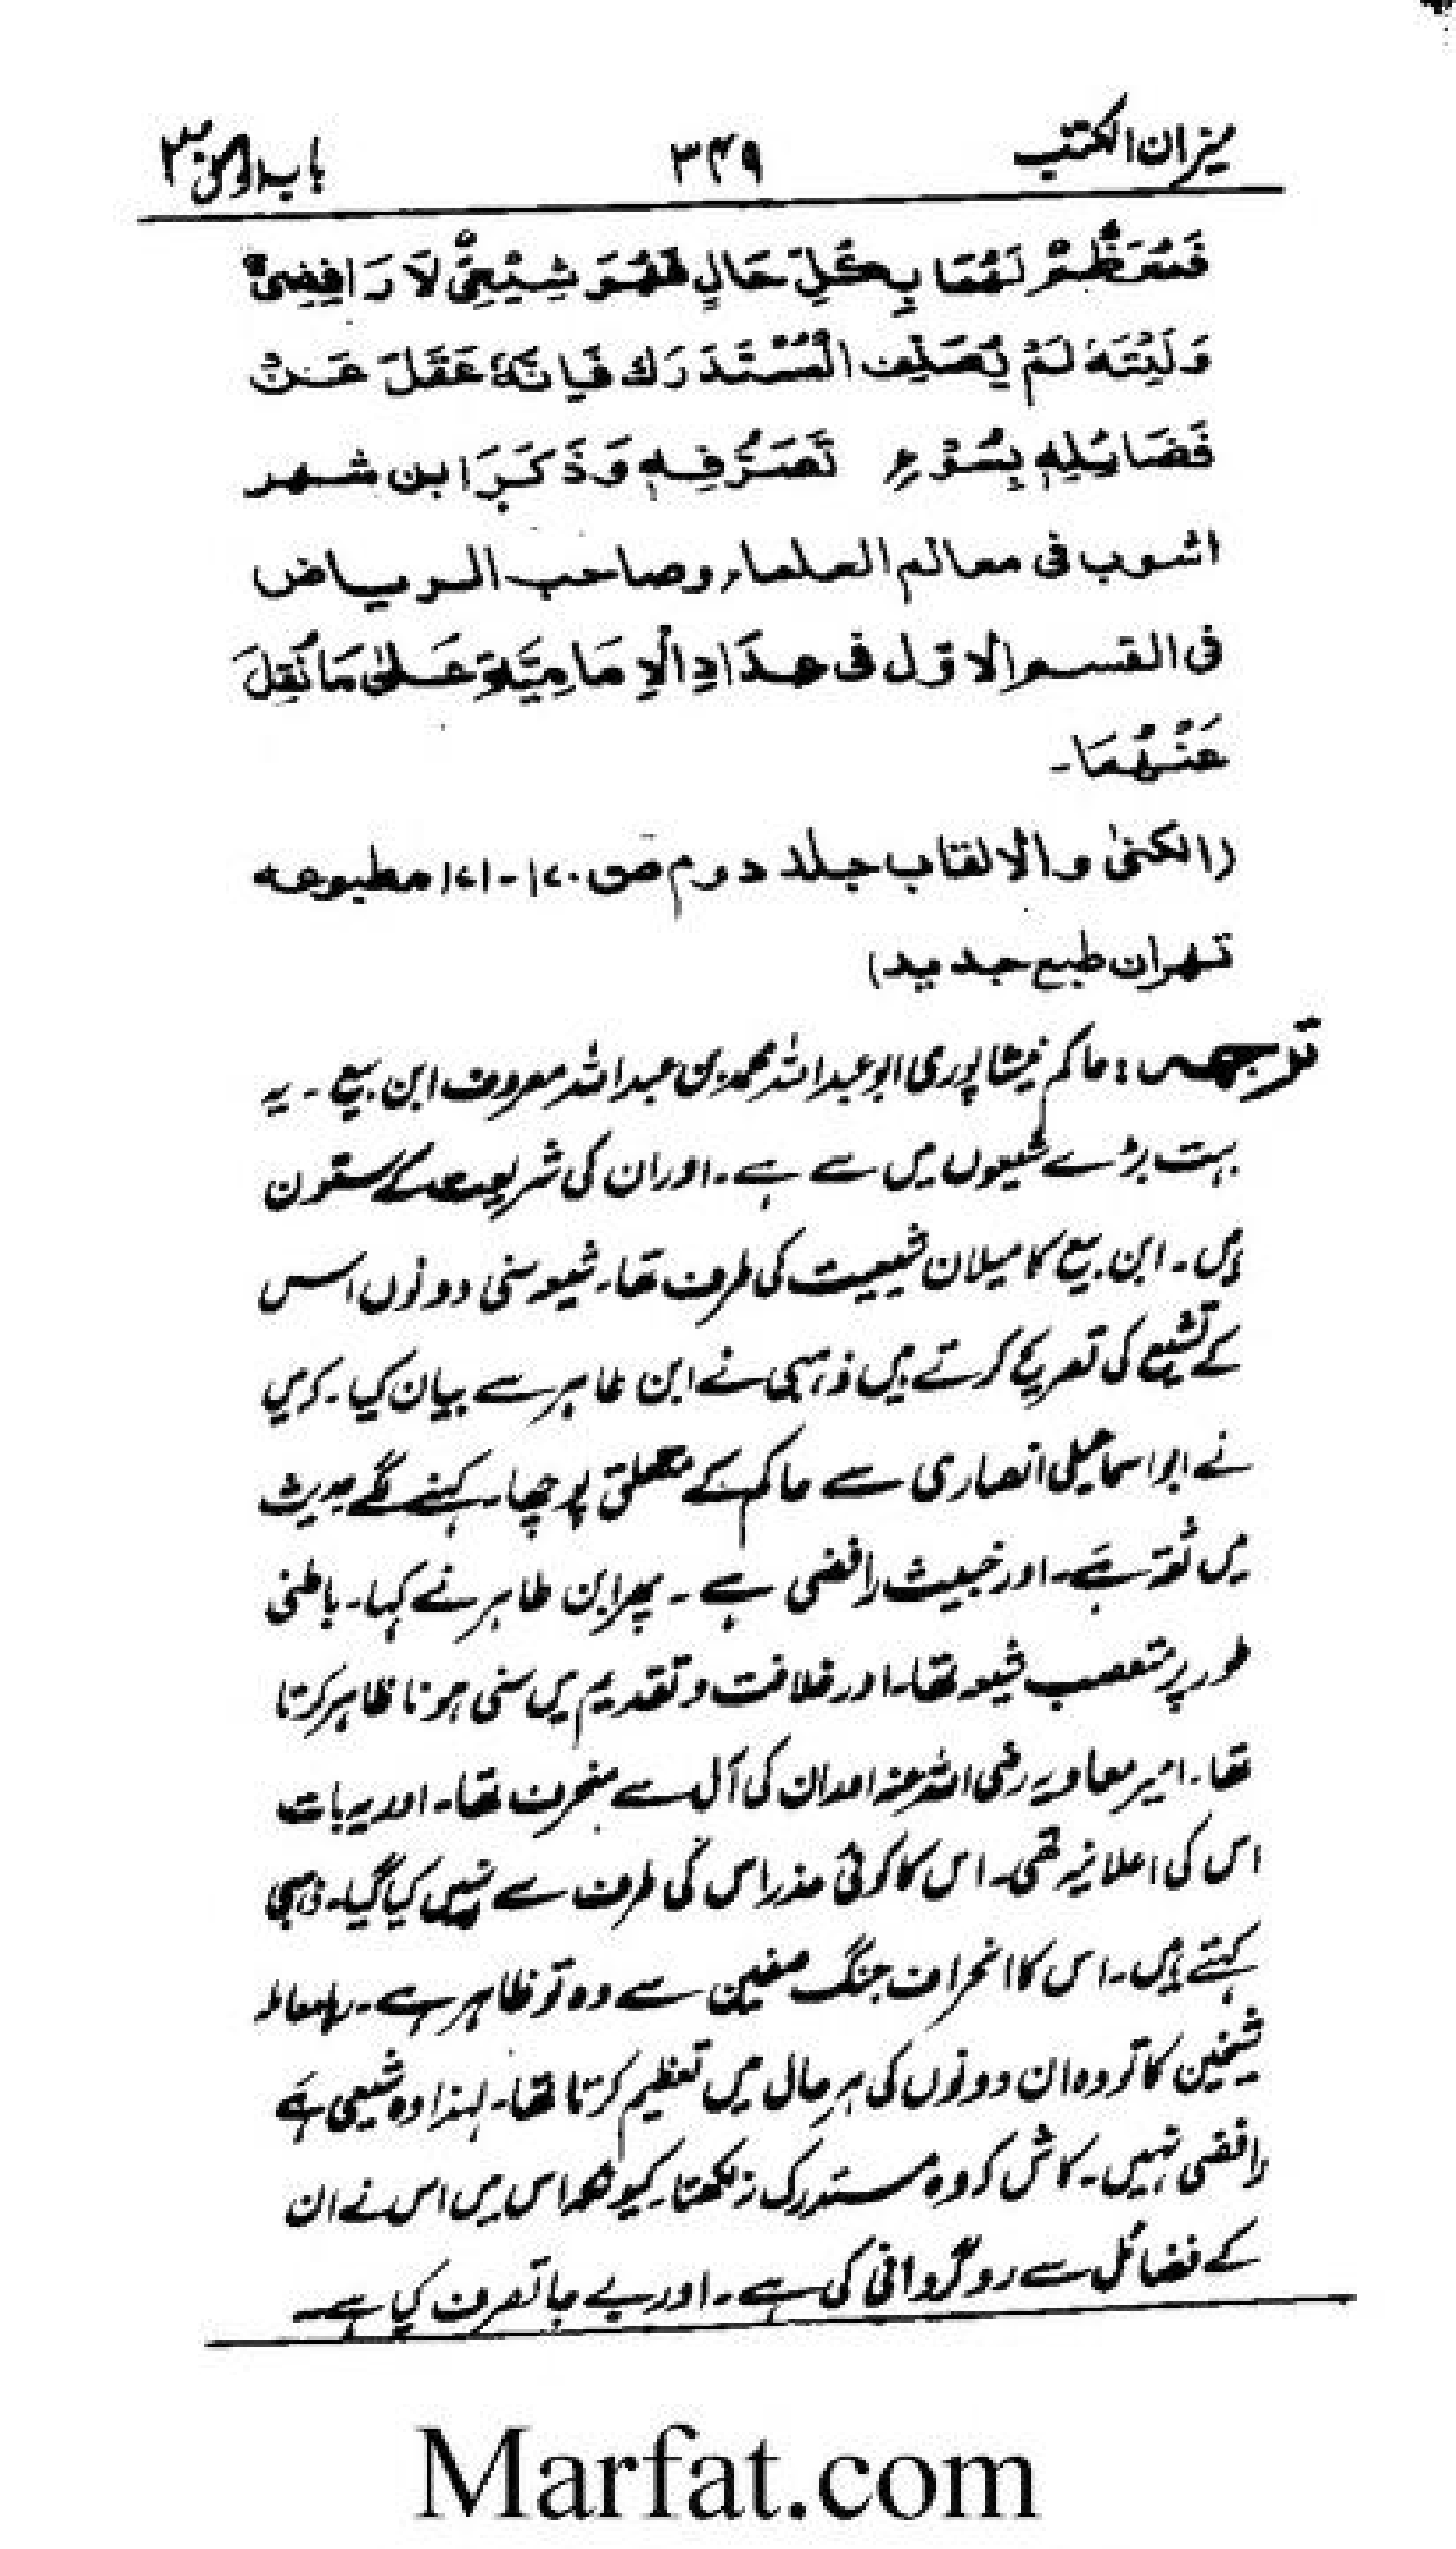 میزان الکتب ۳۴۹ باب اول
فَمُعَظِّمٌ لَهُمَا بِكُلِّ حَالٍ فَهُوَ شِيْعِيٌّ لَا رَافِضِيٌّ
وَلَيْتَهُ لَمْ يُصَنِّفِ الْمُسْتَدْرَك فَاِنَّهُ غَفَلَ عَنْ
فَضَائِلِهٖ بِسُوْءِ تَصَرُّفِهٖ وَذَكَرَ ابن شهر
اشوب فی معالم العلماء وصاحب الریاض
فی القسم الاوّل فی عدَادِ الْاِمَامِيَّةِ عَلٰی مَا نُقِلَ
عَنْهُمَا۔
(الکنیٰ والالقاب جلد دوم ص ۱۷۰-۱۷۱ مطبوعہ
تہران طبع جدید)
ترجمہ: حاکم نیشاپوری ابو عبداللہ محمد بن عبداللہ معروف ابن بیع۔ یہ
بہت بڑے شیعوں میں سے ہے۔ اور ان کی شریعت کے ستون
ہیں۔ ابن بیع کا میلان شیعیت کی طرف تھا۔ شیعہ سنی دونوں اس
کے تشیع کی تصریح کرتے ہیں ذہبی نے ابن طاہر سے بیان کیا۔ کہ میں
نے ابو اسماعیل انصاری سے حاکم کے متعلق پوچھا۔ کہنے لگے حدیث
میں ثقہ ہے۔ اور خبیث رافضی ہے۔ پھر ابن طاہر نے کہا۔ باطنی
طور پر متعصب شیعہ تھا۔ اور خلافت و تقدیم میں سنی ہونا ظاہر کرتا
تھا۔ امیر معاویہ رضی اللہ عنہ اور ان کی آل سے منحرف تھا۔ اور یہ بات
اس کی اعلانیہ تھی۔ اس کا کوئی عذر اس کی طرف سے نہیں کیا گیا۔ ذہبی
کہتے ہیں۔ اس کا انحراف جنگ صفین سے وہ تو ظاہر ہے۔ رہا معاملہ
شیخین کا تو وہ ان دونوں کی ہر حال میں تعظیم کرتا تھا۔ لہذا وہ شیعی ہے
رافضی نہیں۔ کاش کہ وہ مستدرک نہ لکھتا۔ کیونکہ اس میں اس نے ان
کے فضائل سے روگردانی کی ہے۔ اور بے جا تصرف کیا ہے۔
Marfat.com